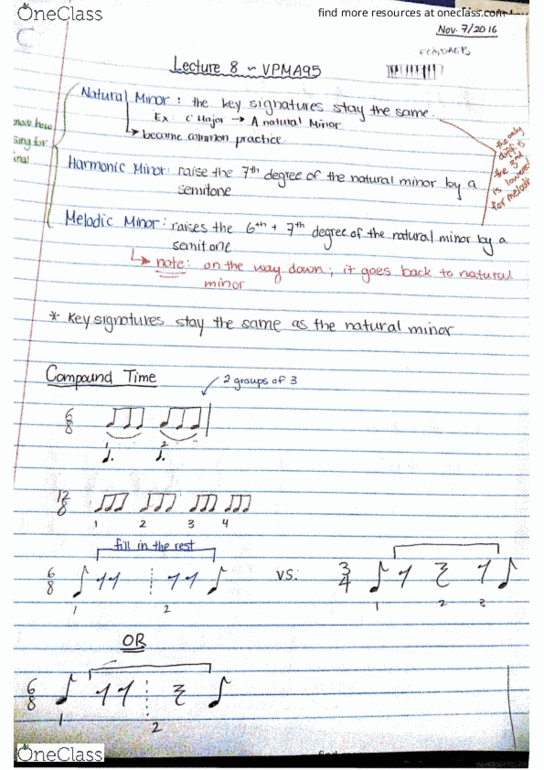 OneClass
find more resources at oneclass.com
Nov. 7/2016
Lecture 8 ~ VPMA95
Natural Minor : the key signatures stay the same.
Ex. C Major → A natural Minor
↳ became common practice.
Harmonic Minor: raise the 7th degree of the natural minor by a
semitone
Melodic Minor: raises the 6th + 7th degree of the natural minor by a
semitone
↳ note: on the way down; it goes back to natural
minor
the only
is
the 3rd
is lowered
for melodic
* key signatures stay the same as the natural minor
Compound Time
2 groups of 3
6/8
1 2
12/8
1 2 3 4
fill in the rest
6/8 vs. 3/4
1 2 1 2 3
OR
6/8
1 2
OneClass